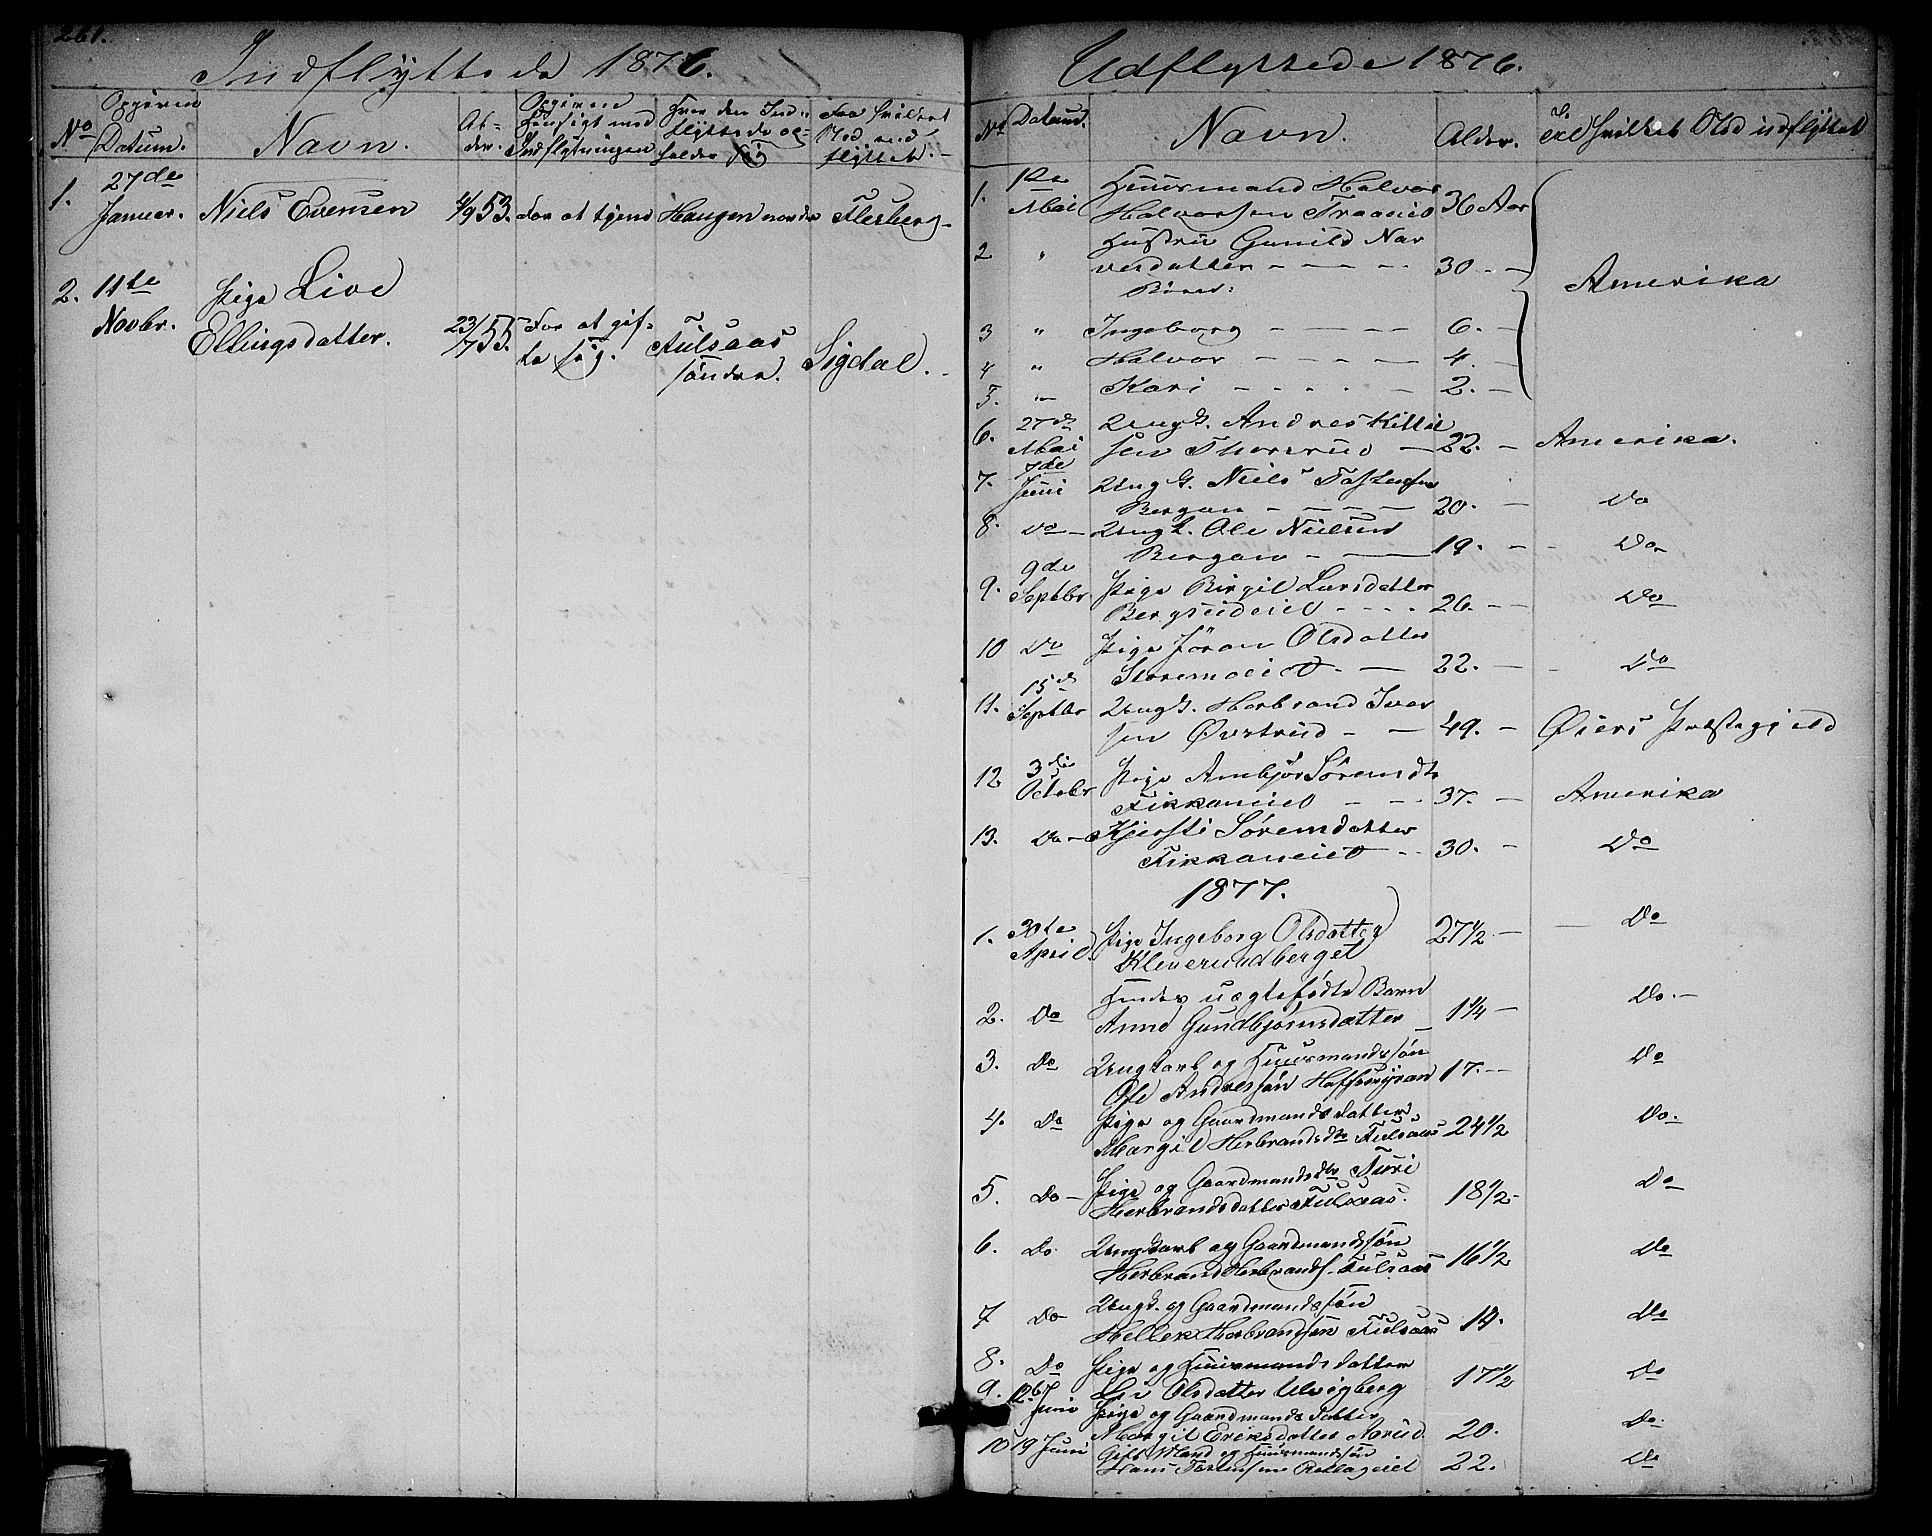 261.
Indflyttede 1876.
No
Opgiven Datum.
Navn.
Alder.
Opgivne Hensigt med Indflytningen
Hvor den Indflyttede opholder sig
Fra hvilket Sted indflyttet.
1. 27de Januar. Niels Evensen 4/9 53. for at tjene Haugen nordre Flesberg.
2. 11te Novbr. Pige Live
Ellingsdatter. 23/7 55. for at gifte sig. Fulsaas søndre. Sigdal.
Udflyttede 1876.
No Datum. Navn. Alder. Til hvilket Sted udflyttet
1. 1ste Mai Huusmand Halvor
Halvorsen Traaneie 36 Aar
2 " Hustru Gunild Nar
vesdatter - - - - 30. -
Børn:
3 " Ingeborg - - - - 6. -
Amerika
4 " Halvor - - - - 4. -
5. " Kari - - - - 2. -
6. 27de Mai Ungk. Andres Kittil
sen Thorsrud - 22. - Amerika.
7. 7de Juni Ungk. Niels Tostensen
Bergan - - - - 20. - Do
8. Do - Ungk. Ole Nielsen
Bergan - - 19. - - Do
9. 9de Septbr Pige Birgit Larsdatter
Bergseideiet - - - - 26. - - Do
10 Do Pige Jöran Olsdatter
Storemoeiet - - 22. - - Do
11. 15de Septbr Ungk. Herbrand Iver
sen Øvstrud - - 49. - Øiers Præstegjeld
12 3die Octobr Pige Ambjør Sørensdtr
Fikkaneiet - - 37. - Amerika
13. Do - Kjersti Sørensdatter
Fikkaneiet - - 30. - Do
1877.
1. 30te April. Pige Ingeborg Olsdatter
Kleverundberget 27 1/2 - - Do
2. Do Hendes uægtefødte Barn
Anne Gundbjørnsdatter - 1 1/4 - Do. -
3. Do Ungkarl og Huusmandssøn
Ole Andressøn 17. - - Do
4. Do Pige og Gaardmandsdatter
Margit Herbrandsdtr Fulsaas 24 1/2 Do.
5. Do - Pige og Gaardmandsdtr Turi
Herbrandsdatter Fulsaas. 18 1/2 - Do
6. Do. Ungkarl og Gaardmandssøn
Herbrand Herbrands. Fulsaas 16 1/2 Do
7 Do Ungk. og Gaardmandssøn
Hellek Herbrandsen Fulsaas 14. Do
8. Do Pige og Huusmandsdatter
Liv Olsdatter Ulvigberg 17 1/2 Do
9. Juni Pige og Gaardmandsdatter
Margit Eriksdatter Aarud. 20. Do.
10 19 Juni Gift Mand og Huusmandssøn
Hans Tostensen 22. Do